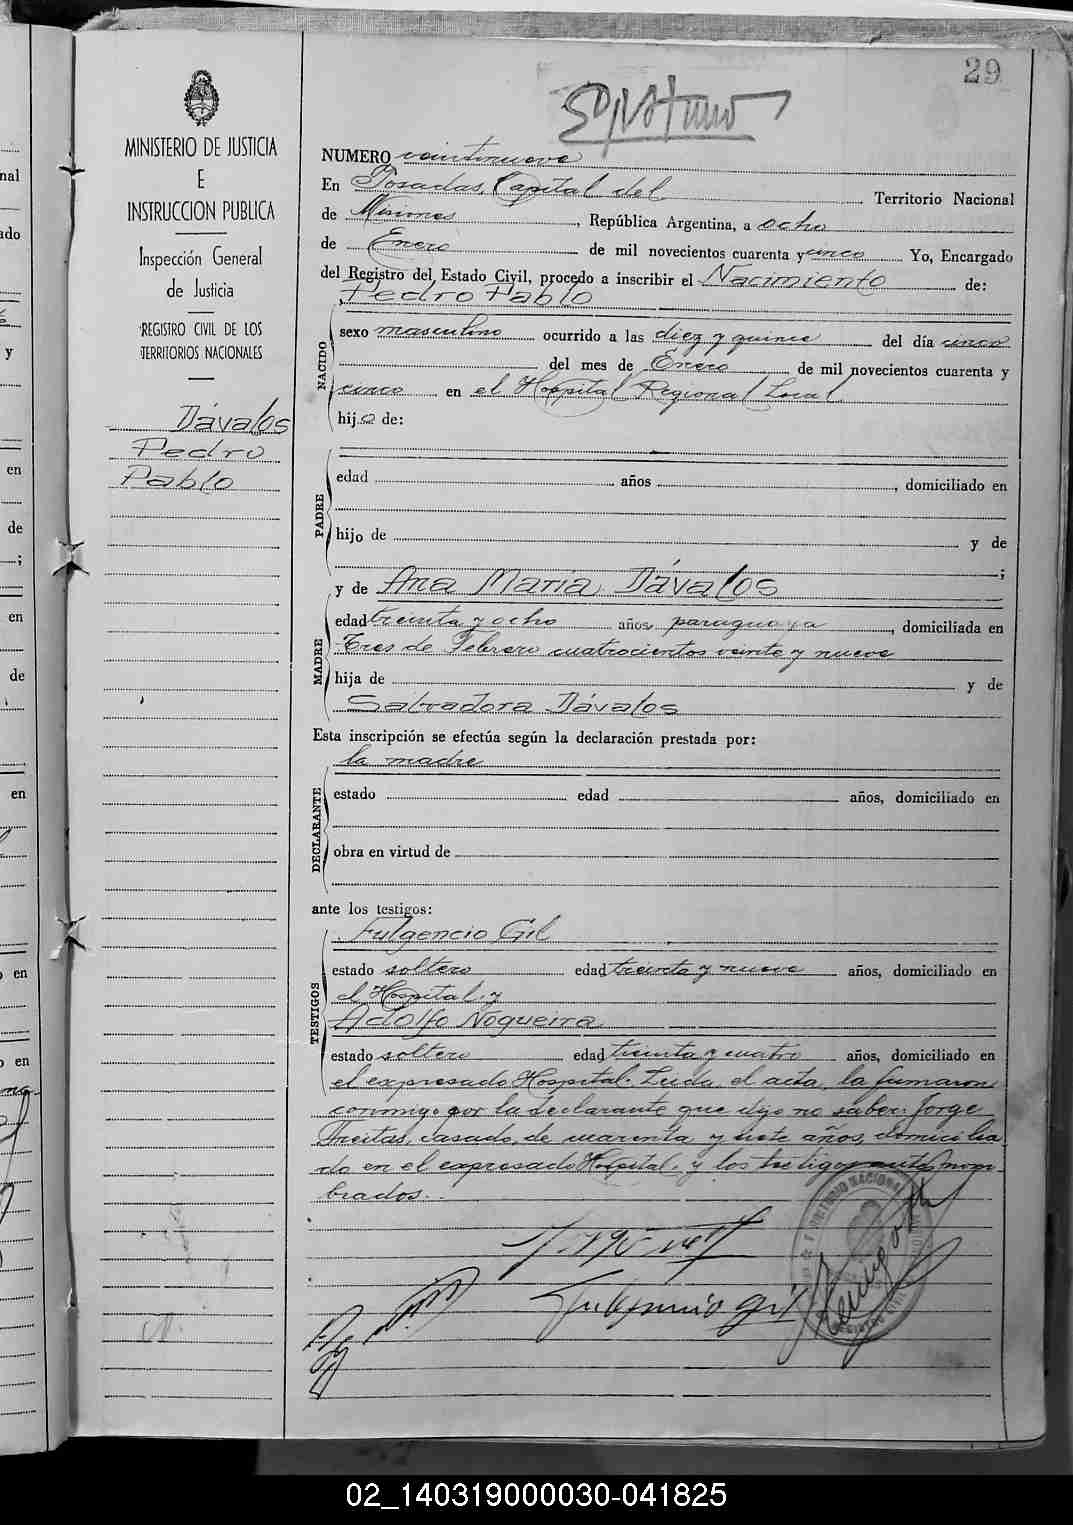 29
NUMERO veintinueve
En Posadas, Capital del Territorio Nacional
de Misiones, República Argentina, a ocho
de Enero de mil novecientos cuarenta y cinco Yo, Encargado
del Registro del Estado Civil, procedo a inscribir el Nacimiento de:
Pedro Pablo
MINISTERIO DE JUSTICIA
E
INSTRUCCION PUBLICA
Inspección General
de Justicia
REGISTRO CIVIL DE LOS
TERRITORIOS NACIONALES
Dávalos
Pedro
Pablo
NACIDO
sexo masculino ocurrido a las diez y quince del día cinco
del mes de Enero de mil novecientos cuarenta y
cinco en el Hospital Regional Local
hijo de:
PADRE
edad años, domiciliado en
hijo de y de
;
y de Ana María Dávalos
MADRE
edad treinta y ocho años, paraguaya, domiciliada en
Tres de Febrero cuatrocientos veinte y nueve
hija de y de
Salvadora Dávalos
Esta inscripción se efectúa según la declaración prestada por:
la madre
DECLARANTE
estado edad años, domiciliado en
obra en virtud de
ante los testigos:
TESTIGOS
Fulgencio Gil
estado soltero edad treinta y nueve años, domiciliado en
el Hospital y
Adolfo Nogueira
estado soltero edad treinta y cuatro años, domiciliado en
el expresado Hospital. Leída el acta, la firmaron
conmigo por la declarante que dijo no saber: Jorge
Freitas, casado, de cuarenta y siete años, domicilia
do en el expresado Hospital, y los testigos antes nom-
brados.
Fulgencio Gil
02_140319000030-041825